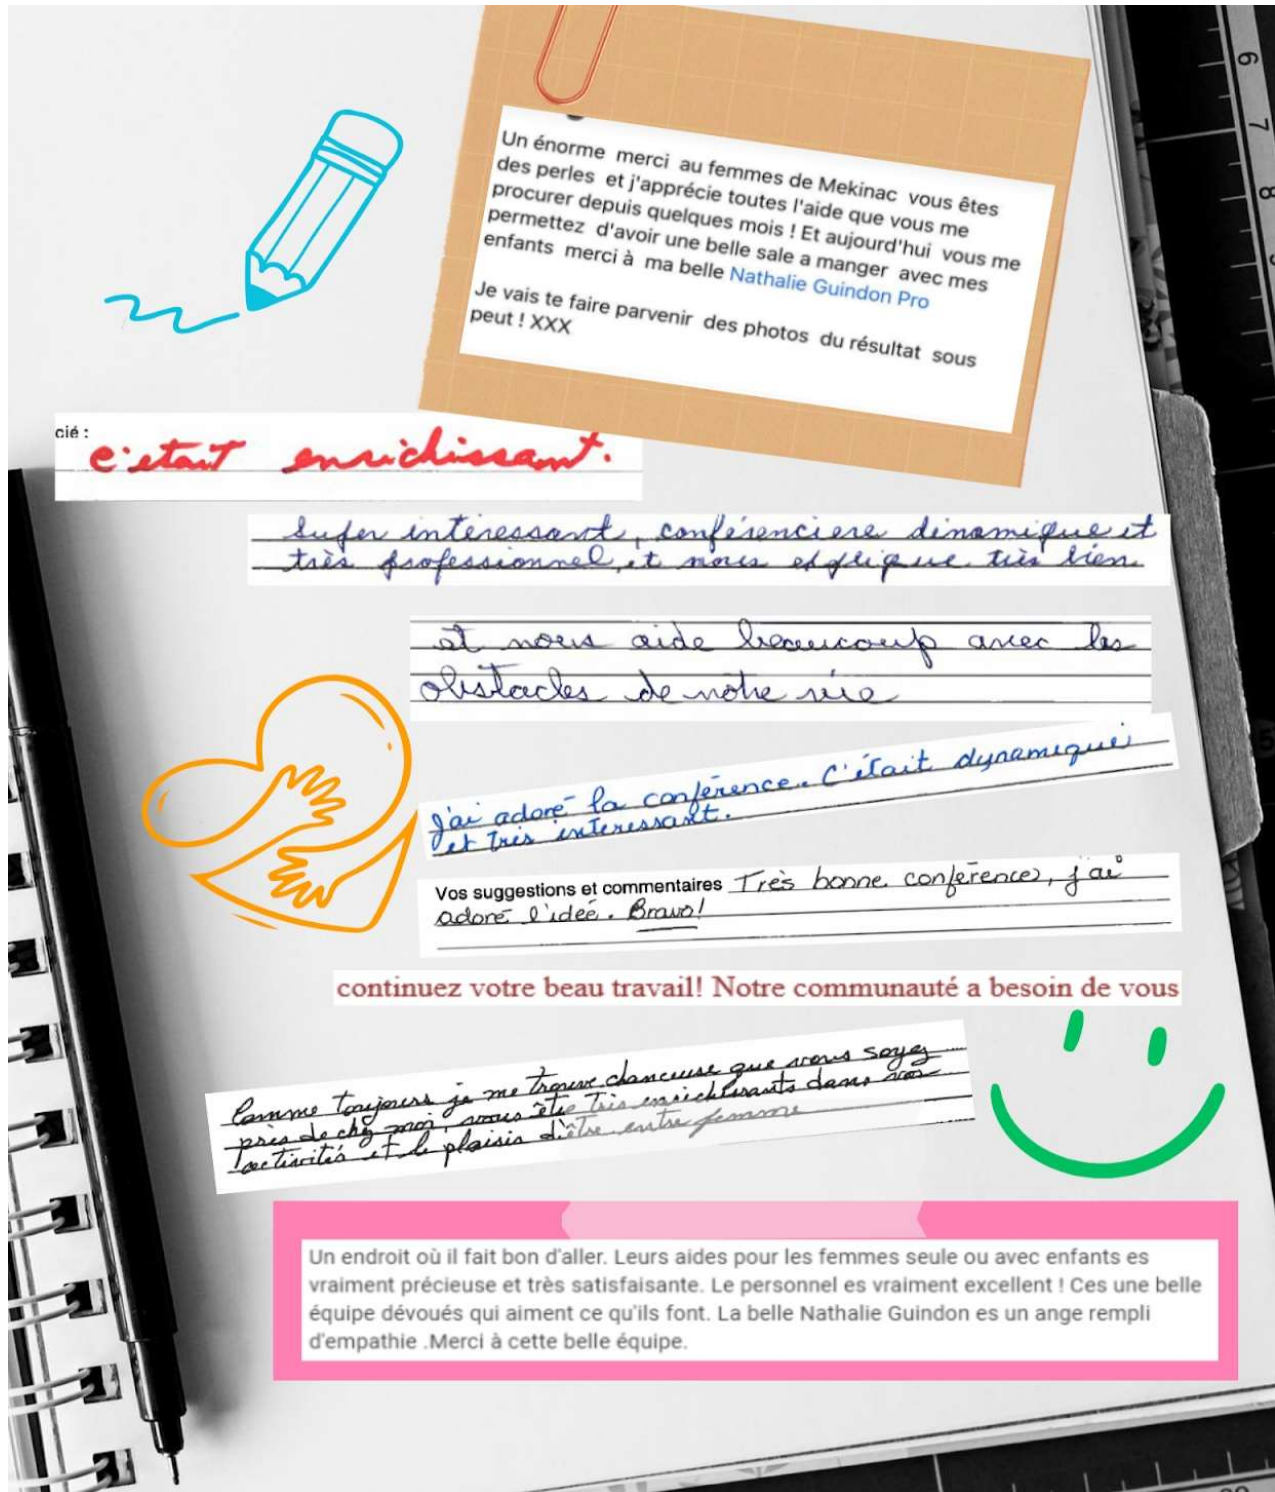 Un énorme merci au femmes de Mekinac vous êtes
des perles et j'apprécie toutes l'aide que vous me
procurer depuis quelques mois ! Et aujourd'hui vous me
permettez d'avoir une belle sale a manger avec mes
enfants merci à ma belle Nathalie Guindon Pro
Je vais te faire parvenir des photos du résultat sous
peut ! XXX
cié :
c'etait enrichissant.
Super intéressant, conférenciere dinamique et
très professionnel, et nous explique très bien
et nous aide beaucoup avec les
obstacles de notre vie
J'ai adoré la conférence. C'était dynamique
et très interessant.
Vos suggestions et commentaires Très bonne conférence, j'ai
adoré l'idée. Bravo!
continuez votre beau travail! Notre communauté a besoin de vous
Comme toujours je me trouve chanceuse que vous soyez
près de chez moi, vous ête très enrichissants dans vos
activités et le plaisir d'être entre femme
Un endroit où il fait bon d'aller. Leurs aides pour les femmes seule ou avec enfants es
vraiment précieuse et très satisfaisante. Le personnel es vraiment excellent ! Ces une belle
équipe dévoués qui aiment ce qu'ils font. La belle Nathalie Guindon es un ange rempli
d'empathie .Merci à cette belle équipe.
6
7
8